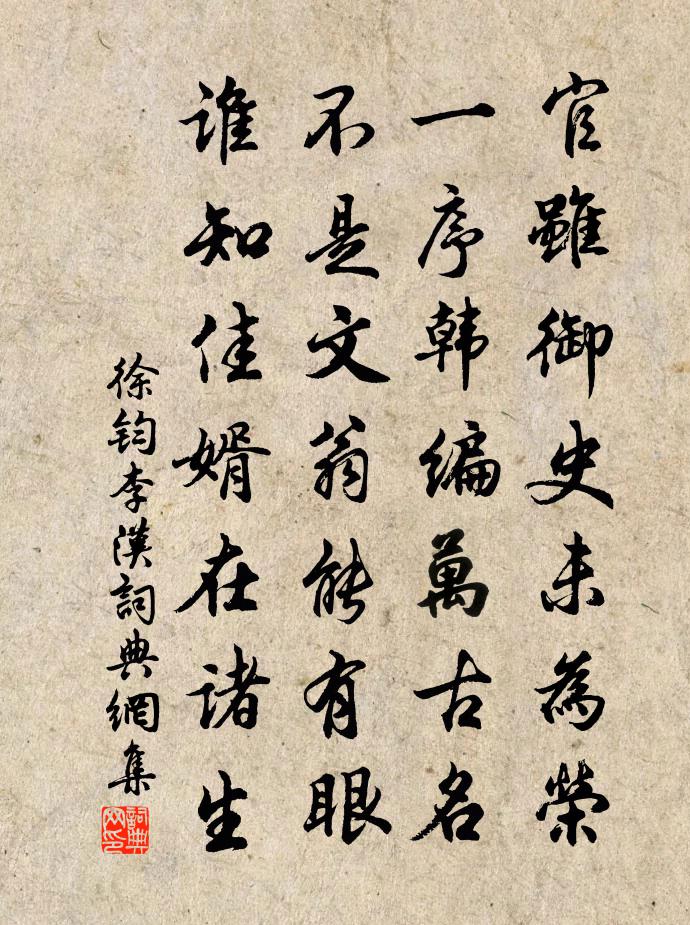 官雖御史未為榮
一序韩编萬古名
不是文翁能有眼
谁知佳婿在诸生
徐钧李漢詞典網集
詞典网印